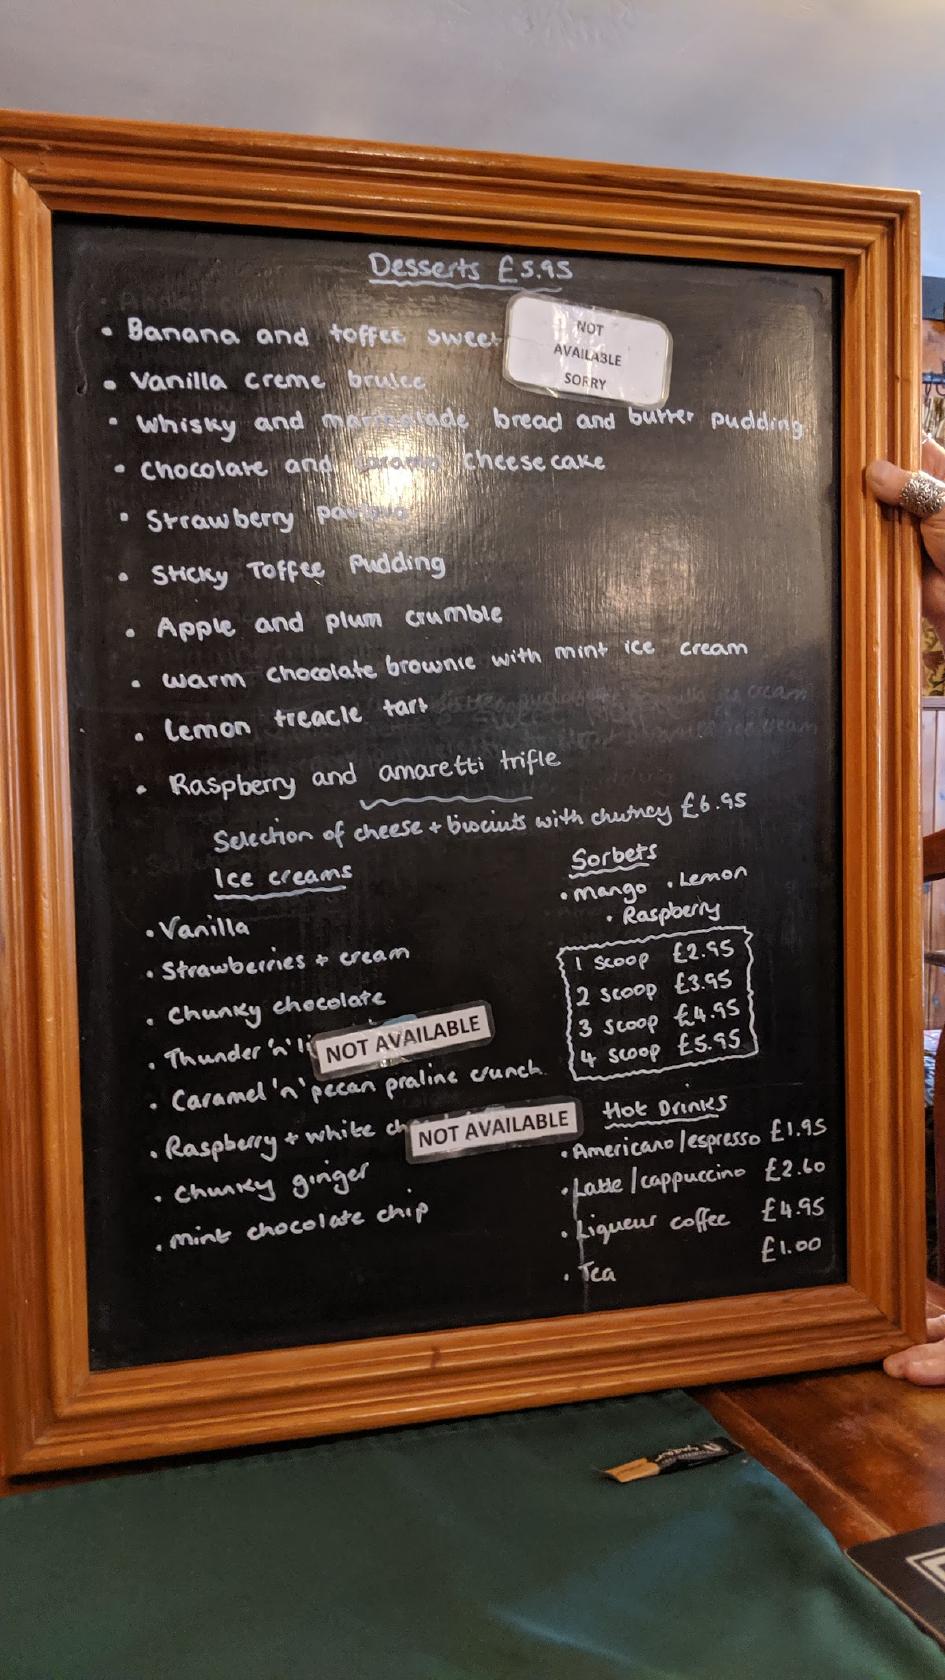 Desserts £5.95
• Banana and toffee sweet
NOT
AVAILABLE
SORRY
• Vanilla creme brulee
• Whisky and marmalade bread and butter pudding
• Chocolate and caramel cheesecake
• Strawberry pavlova
• Sticky Toffee Pudding
• Apple and plum crumble
• Warm chocolate brownie with mint ice cream
• Lemon treacle tart
• Raspberry and amaretti trifle
Selection of cheese + biscuits with chutney £6.95
Ice creams
• Vanilla
• Strawberries + cream
• Chunky chocolate
• Thunder 'n' li
NOT AVAILABLE
• Caramel 'n' pecan praline crunch
• Raspberry + white ch
NOT AVAILABLE
• Chunky ginger
• Mint chocolate chip
Sorbets
• Mango • Lemon
• Raspberry
1 scoop £2.95
2 scoop £3.95
3 scoop £4.95
4 scoop £5.95
Hot Drinks
• Americano/espresso £1.95
• Latte/cappuccino £2.60
• Liqueur coffee £4.95
• Tea £1.00